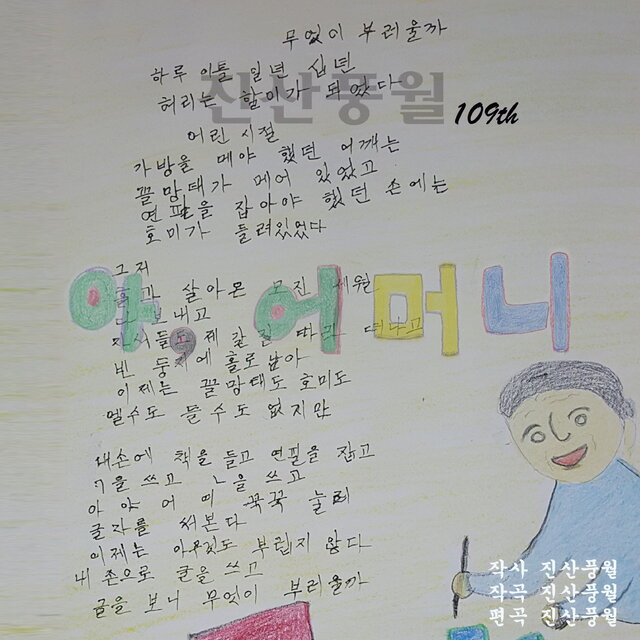 무엇이 부러울까
하루 이틀 일년 십년
진산풍월
허리는 할미가 되었다
109th
어린 시절
가방을 메야 했던 어깨는
꼴망태가 메어 있었고
연필을 잡아야 했던 손에는
호미가 들려있었다
그저
살아온 모진 세월
보내고
제 갈길 따라 떠나고
아, 어머니
빈 둥지에 홀로남아
이제는 꼴망태도 호미도
멜수도 들 수도 없지만
내손에 책을 들고 연필을 잡고
ㄱ을 쓰고 ㄴ을 쓰고
아 야 어 여 꾹꾹 눌러
글자를 써본다
이제는 아무것도 부럽지 않다
내 손으로 글을 쓰고
글을 보니 무엇이 부러울까
작사 진산풍월
작곡 진산풍월
편곡 진산풍월